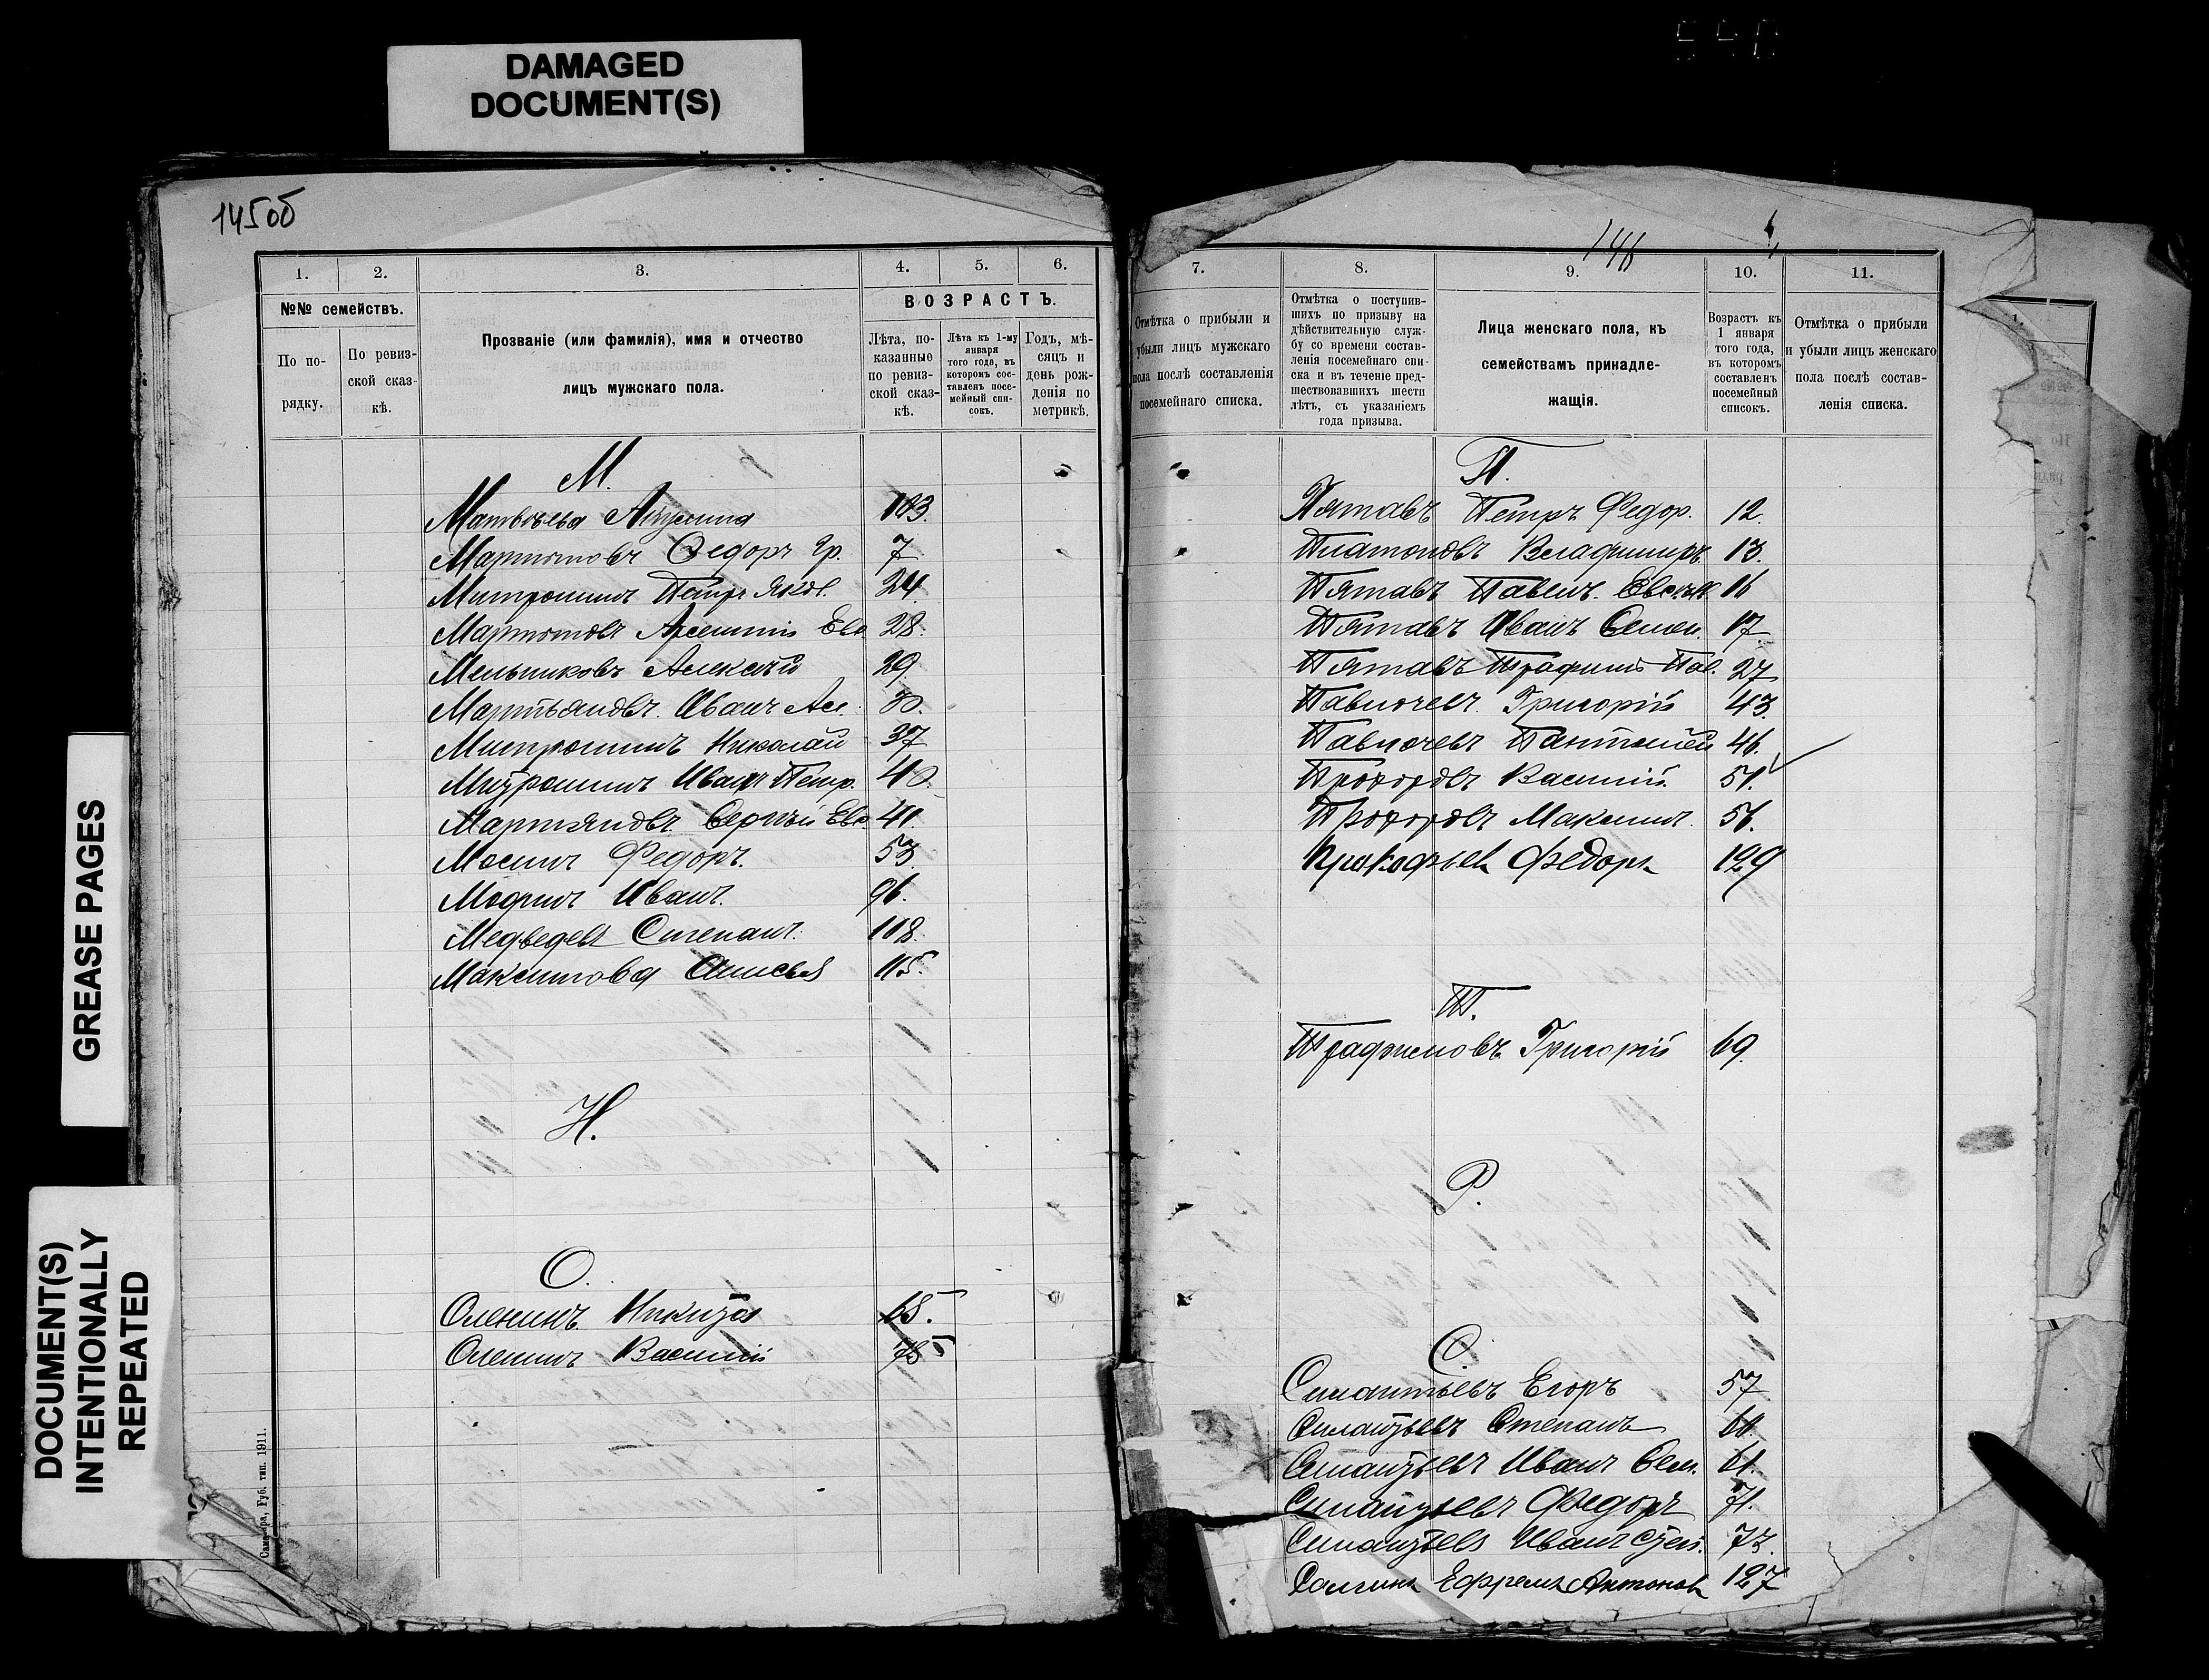 DAMAGED
DOCUMENT(S)
GREASE PAGES
DOCUMENT(S)
INTENTIONALLY
REPEATED
145об
1.
2.
3.
4.
5.
6.
№№ семействъ.
По по-
рядку.
По ревиз-
ской сказ-
кѣ.
Прозваніе (или фамилія), имя и отчество
лицъ мужскаго пола.
ВОЗРАСТЪ.
Лѣта, по-
казанные
по ревиз-
ской сказ-
кѣ.
Лѣта къ 1-му
января
того года, въ
которомъ сос-
тавленъ посе-
мейный спи-
сокъ.
Годъ, мѣ-
сяцъ и
день рож-
денія по
метрикѣ.
М.
Матвѣева 103.
Мартыновъ Ѳедоръ Гр. 7
Митрошинъ Петръ Яковл. 24.
Мартыновъ Арсентій Евс. 28.
Мельниковъ Алексѣй 29.
Мартьяновъ Иванъ Ал. 30.
Митрошинъ Николай 37
Митрошинъ Иванъ Петр. 40.
Мартяновъ Сергѣй Евс. 41.
Мосинъ Федоръ. 53
Мофинъ Иванъ. 96.
Медведевъ Степанъ. 108.
Максимова Анисья 115.
Н.
О.
Оленинъ Никита 68.
Оленинъ Василій 78
Самара, Губ. тип. 1911.
146
7.
8.
9.
10.
11.
Отмѣтка о прибыли и
убыли лицъ мужскаго
пола послѣ составленія
посемейнаго списка.
Отмѣтка о поступив-
шихъ по призыву на
дѣйствительную служ-
бу со времени состав-
ленія посемейнаго спи-
ска и въ теченіе пред-
шествовавшихъ шести
лѣтъ, съ указаніемъ
года призыва.
Лица женскаго пола, къ
семействамъ принадле-
жащія.
Возрастъ къ
1 января
того года,
въ которомъ
составленъ
посемейный
списокъ.
Отмѣтка о прибыли
и убыли лицъ женскаго
пола послѣ состав-
ленія списка.
П.
Пятавъ Петръ Федор. 12.
Платоновъ Владимиръ 13.
Пятавъ Павелъ 16
Пятавъ Иванъ Семен. 17
Пятавъ Трафимъ Пав. 27
Павлочевъ Григорій 43.
Павлочевъ Пантелей 46.
Прохоровъ Василій 51.
Прохоровъ Максимъ 56.
Прокофьевъ Федоръ 129
Т.
Трафимовъ Григорій 69.
Р.
С.
Силантьевъ Егоръ 57
Силантьевъ Степанъ 60.
Силантьевъ Иванъ Сем. 61.
Силантьевъ Федоръ 71.
Силантьевъ Иванъ Степ. 73.
Ефремъ Антоновъ 127